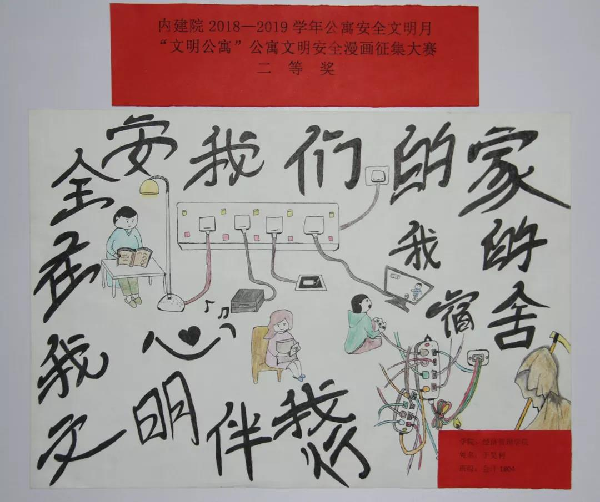 内建院2018—2019学年公寓安全文明月
“文明公寓”公寓文明安全漫画征集大赛
二等奖
安我们的家
我的宿舍
全在我心
文明伴我行